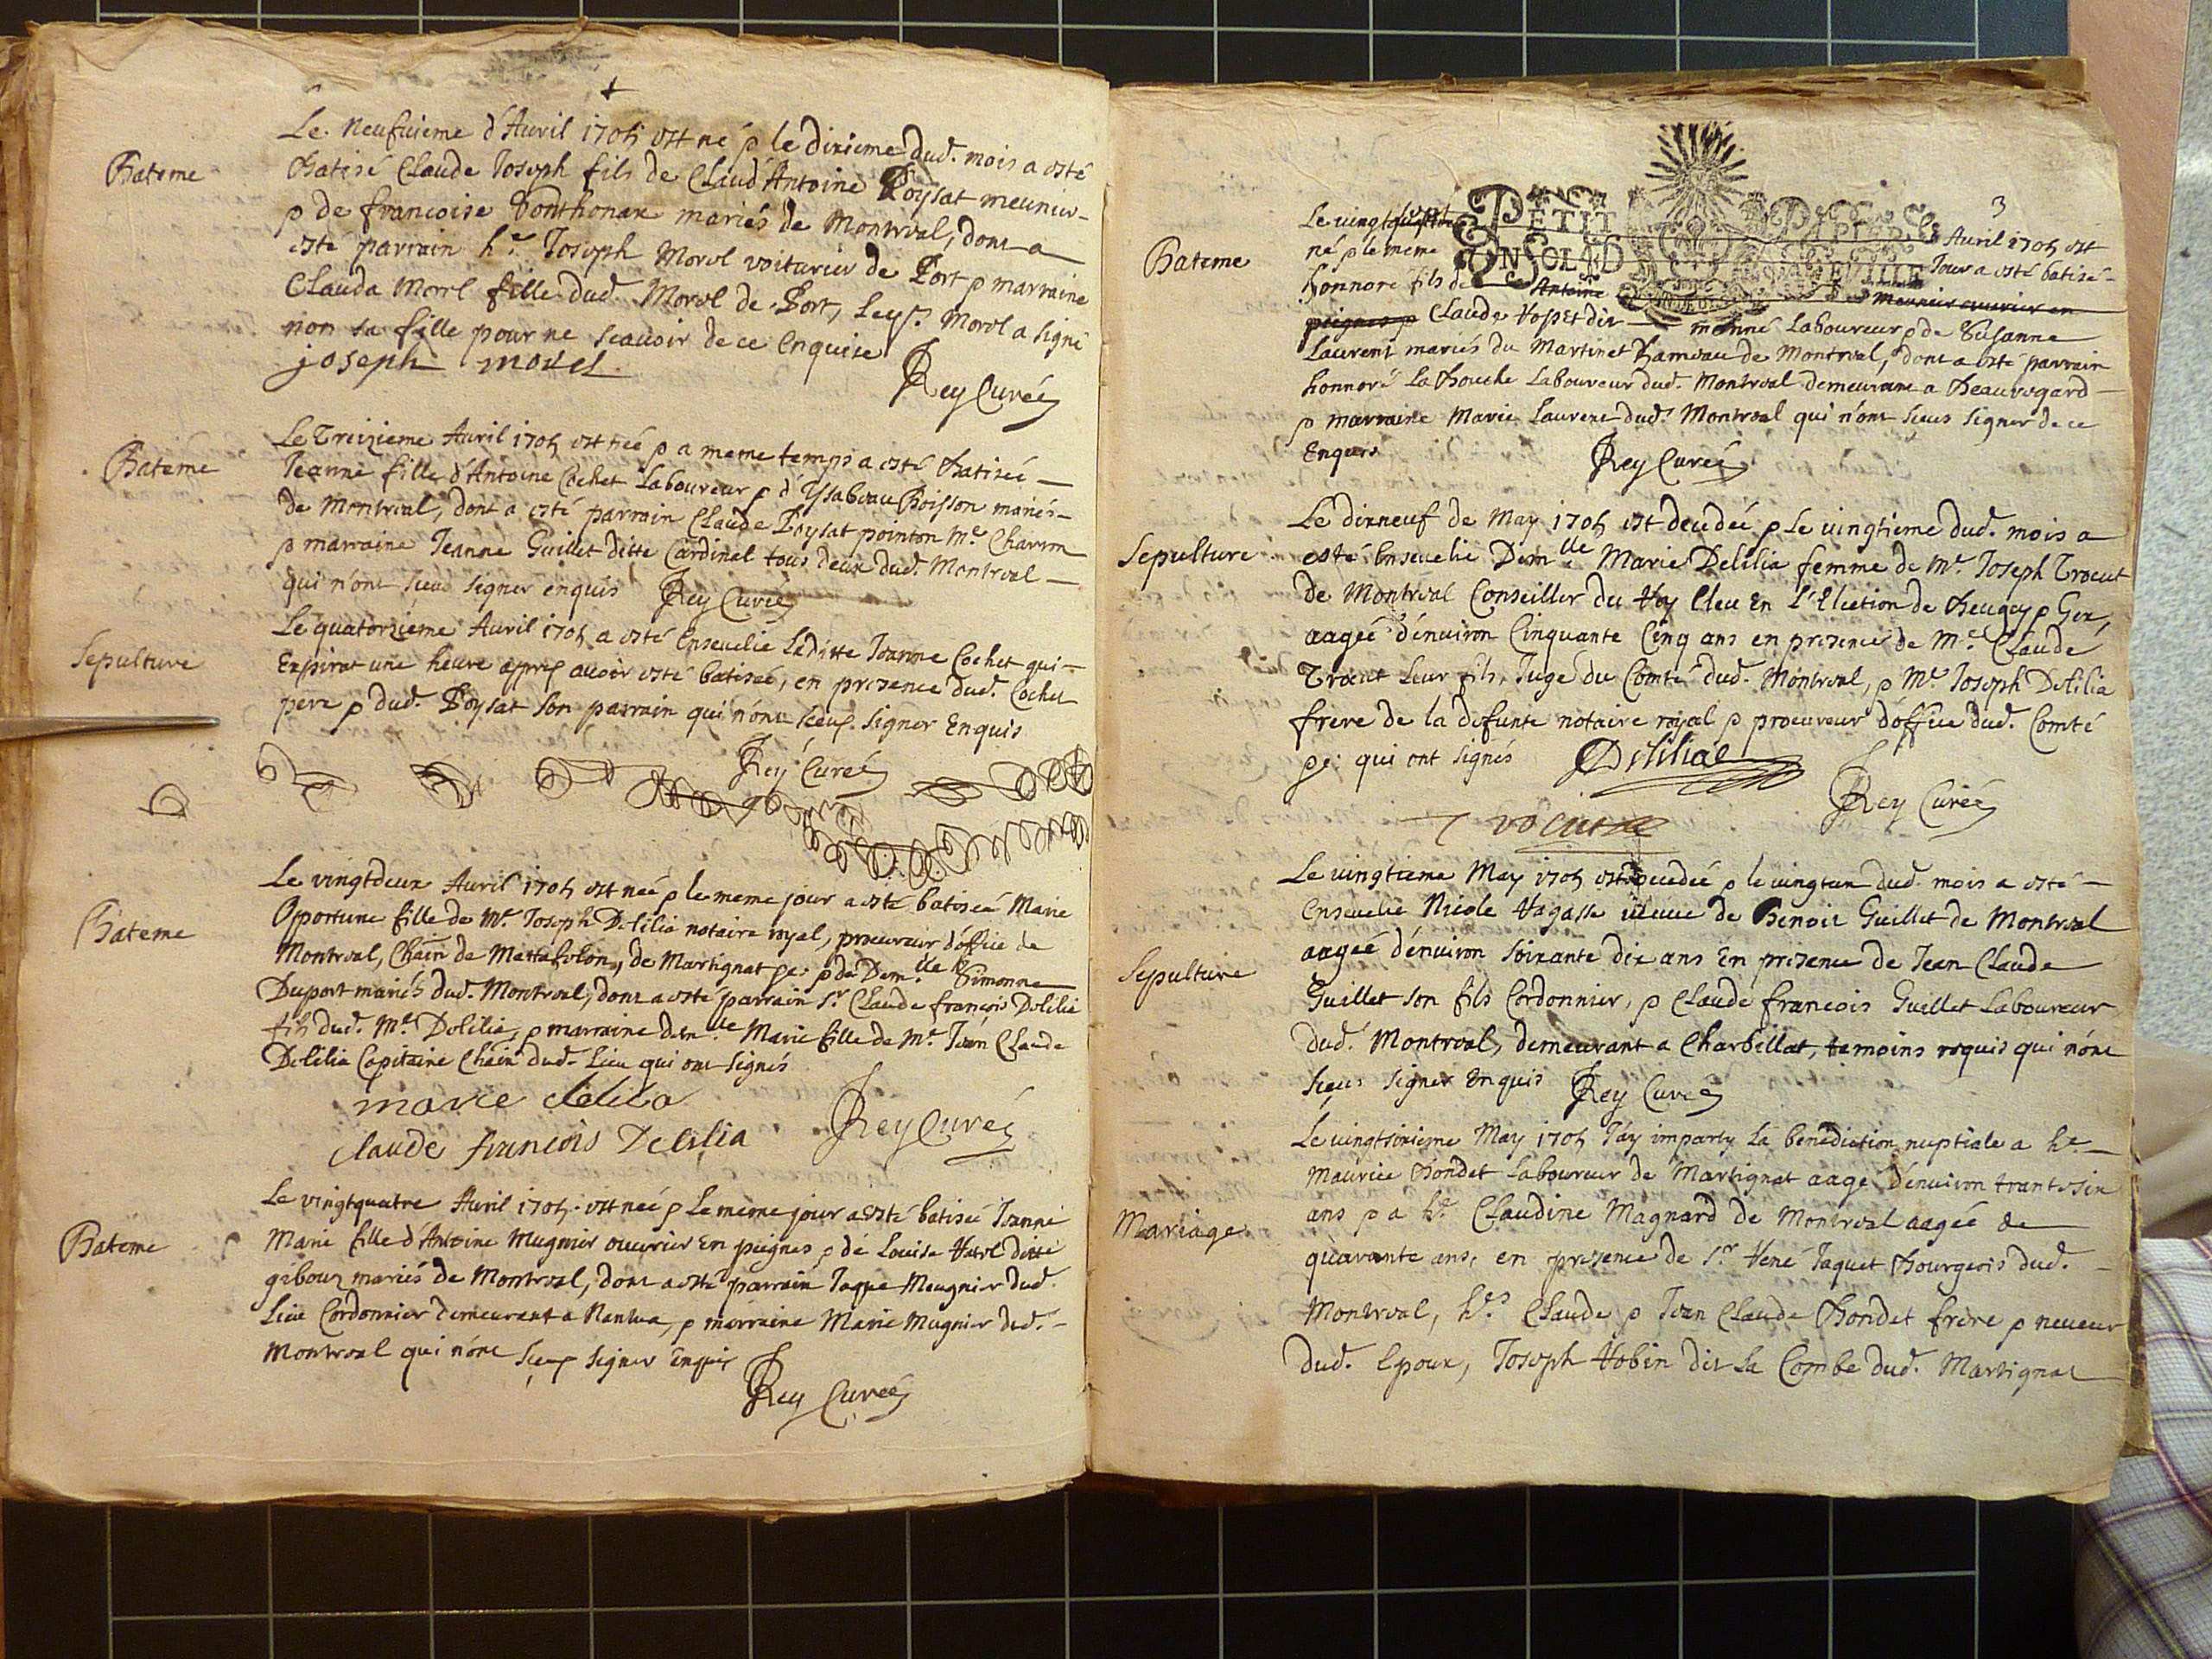 Bateme
Le neufuieme d'Auril 1705 est né p le dixieme dud. mois a esté
Batisé Claude Joseph fils de Claud'Antoine Poysat meunier
p de francoise Bonthonax mariés de Montreal, dont a
esté parrain h.e Joseph Morel voiturier de Port p marraine
Clauda Morel fille dud. Morel de Port, Led.t Morel a signé
non sa fille pour ne scauoir de ce Enquise
joseph morel
Rey Curé
Bateme
Le Treizieme Auril 1705 est née p a meme temps a esté Batiseé
Jeanne fille d'Antoine Cochet Laboureur p d'Ysabeau Boisson mariés
de Montreal, dont a esté parrain Claude Poysat pointon M.e Charron
p marraine Jeanne Guillet ditte Cardinal tous deux dud. Montreal
qui n'ont sceus signer enquis Rey Curé
Sepulture
Le quatorzieme Auril 1705 a esté Enseuelie Laditte Jeanne Cochet qui
Expirat une heure appres auoir esté batiseé, en presence dud. Cochet
pere p dud. Poysat son parrain qui n'ont sceus signer Enquis
Rey Curé
Bateme
Le vingtdeux Auril 1705 est neé p le meme jour a esté batiseé Marie
Opportune fille de M.e Joseph Delilia notaire royal, procureur d'office de
Montreal, Chain de Mattafelon, de Martignat pe: p de Dem.lle Simonne
Duport mariés dud. Montreal, dont a esté parrain s.r Claude françois Delilia
fils dud. M.e Delilia, p marraine dem.lle Marie fille de M.e Jean Claude
Delilia Capitaine Chain dud. Lieu qui ont signés
marie delilia
claude francois Delilia
Rey Curé
Bateme
Le vingtquatre Auril 1705 est neé p le meme jour a esté batiseé Jeanne
Marie fille d'Antoine Mugnier ouurier En peignes p de Louise Varel ditte
gibouz mariés de Montreal, dont a esté parrain Jaque Meugnier dud.
Lieu Cordonnier demeurant a Nantua, p marraine Marie Mugnier dud.
Montreal qui n'ont sceus signer Enquis
Rey Curé
3
PETIT PAPIER
UN SOL
Bateme
Le vingt Auril 1705 est
né p le meme Jour a esté batisé
honnoré fils de Antoine Meunier ouurier en
peignes p Claude dit monné Laboureur p de Susanne
Laurent mariés du Martinet hameau de Montreal, dont a esté parrain
honnoré La Bouche Laboureur dud. Montreal demeurant a Beauregard
p marraine Marie Laurent dud. Montreal qui n'ont sceus signer de ce
Enquis
Rey Curé
Sepulture
Le dixneuf de May 1705 est decedeé p Le uingtieme dud. mois a
esté Enseuelie Dem.lle Marie Delilia femme de M.e Joseph Trocut
de Montreal Conseiller du Roy Eleu En L'Election de Beugey p Gex,
aageé d'enuiron Cinquante Cinq ans en presence de M.e Claude
Trocut Leur fils, Juge du Comté dud. Montreal, p M.e Joseph Delilia
frere de la defunte notaire royal p procureur d'office dud. Comté
pe: qui ont signés Delilia
Rey Curé
Sepulture
Le vingtieme May 1705 est decedeé p le vingtun dud. mois a esté
Enseuelie Nicole Ragasse ueuue de Benoit Guillet de Montreal
aageé d'enuiron soixante dix ans En presence de Jean Claude
Guillet son fils Cordonnier, p Claude francois Guillet Laboureur
dud. Montreal, demeurant a Charbillat, temoins requis qui n'ont
sceus signer Enquis Rey Curé
Mariage
Le uingtsixieme May 1705 J'ay imparty La benediction nuptiale a h.e
Maurice Bondet Laboureur de Martignat aagé d'enuiron trantesix
ans p a h.e Claudine Magnard de Montreal aagée de
quarante ans, en presence de s.r René Jaquet Bourgeois dud.
Montreal, h.es Claude p Jean Claude Bondet frere p neueux
dud. Epoux, Joseph Robin dit La Combe dud. Martignat